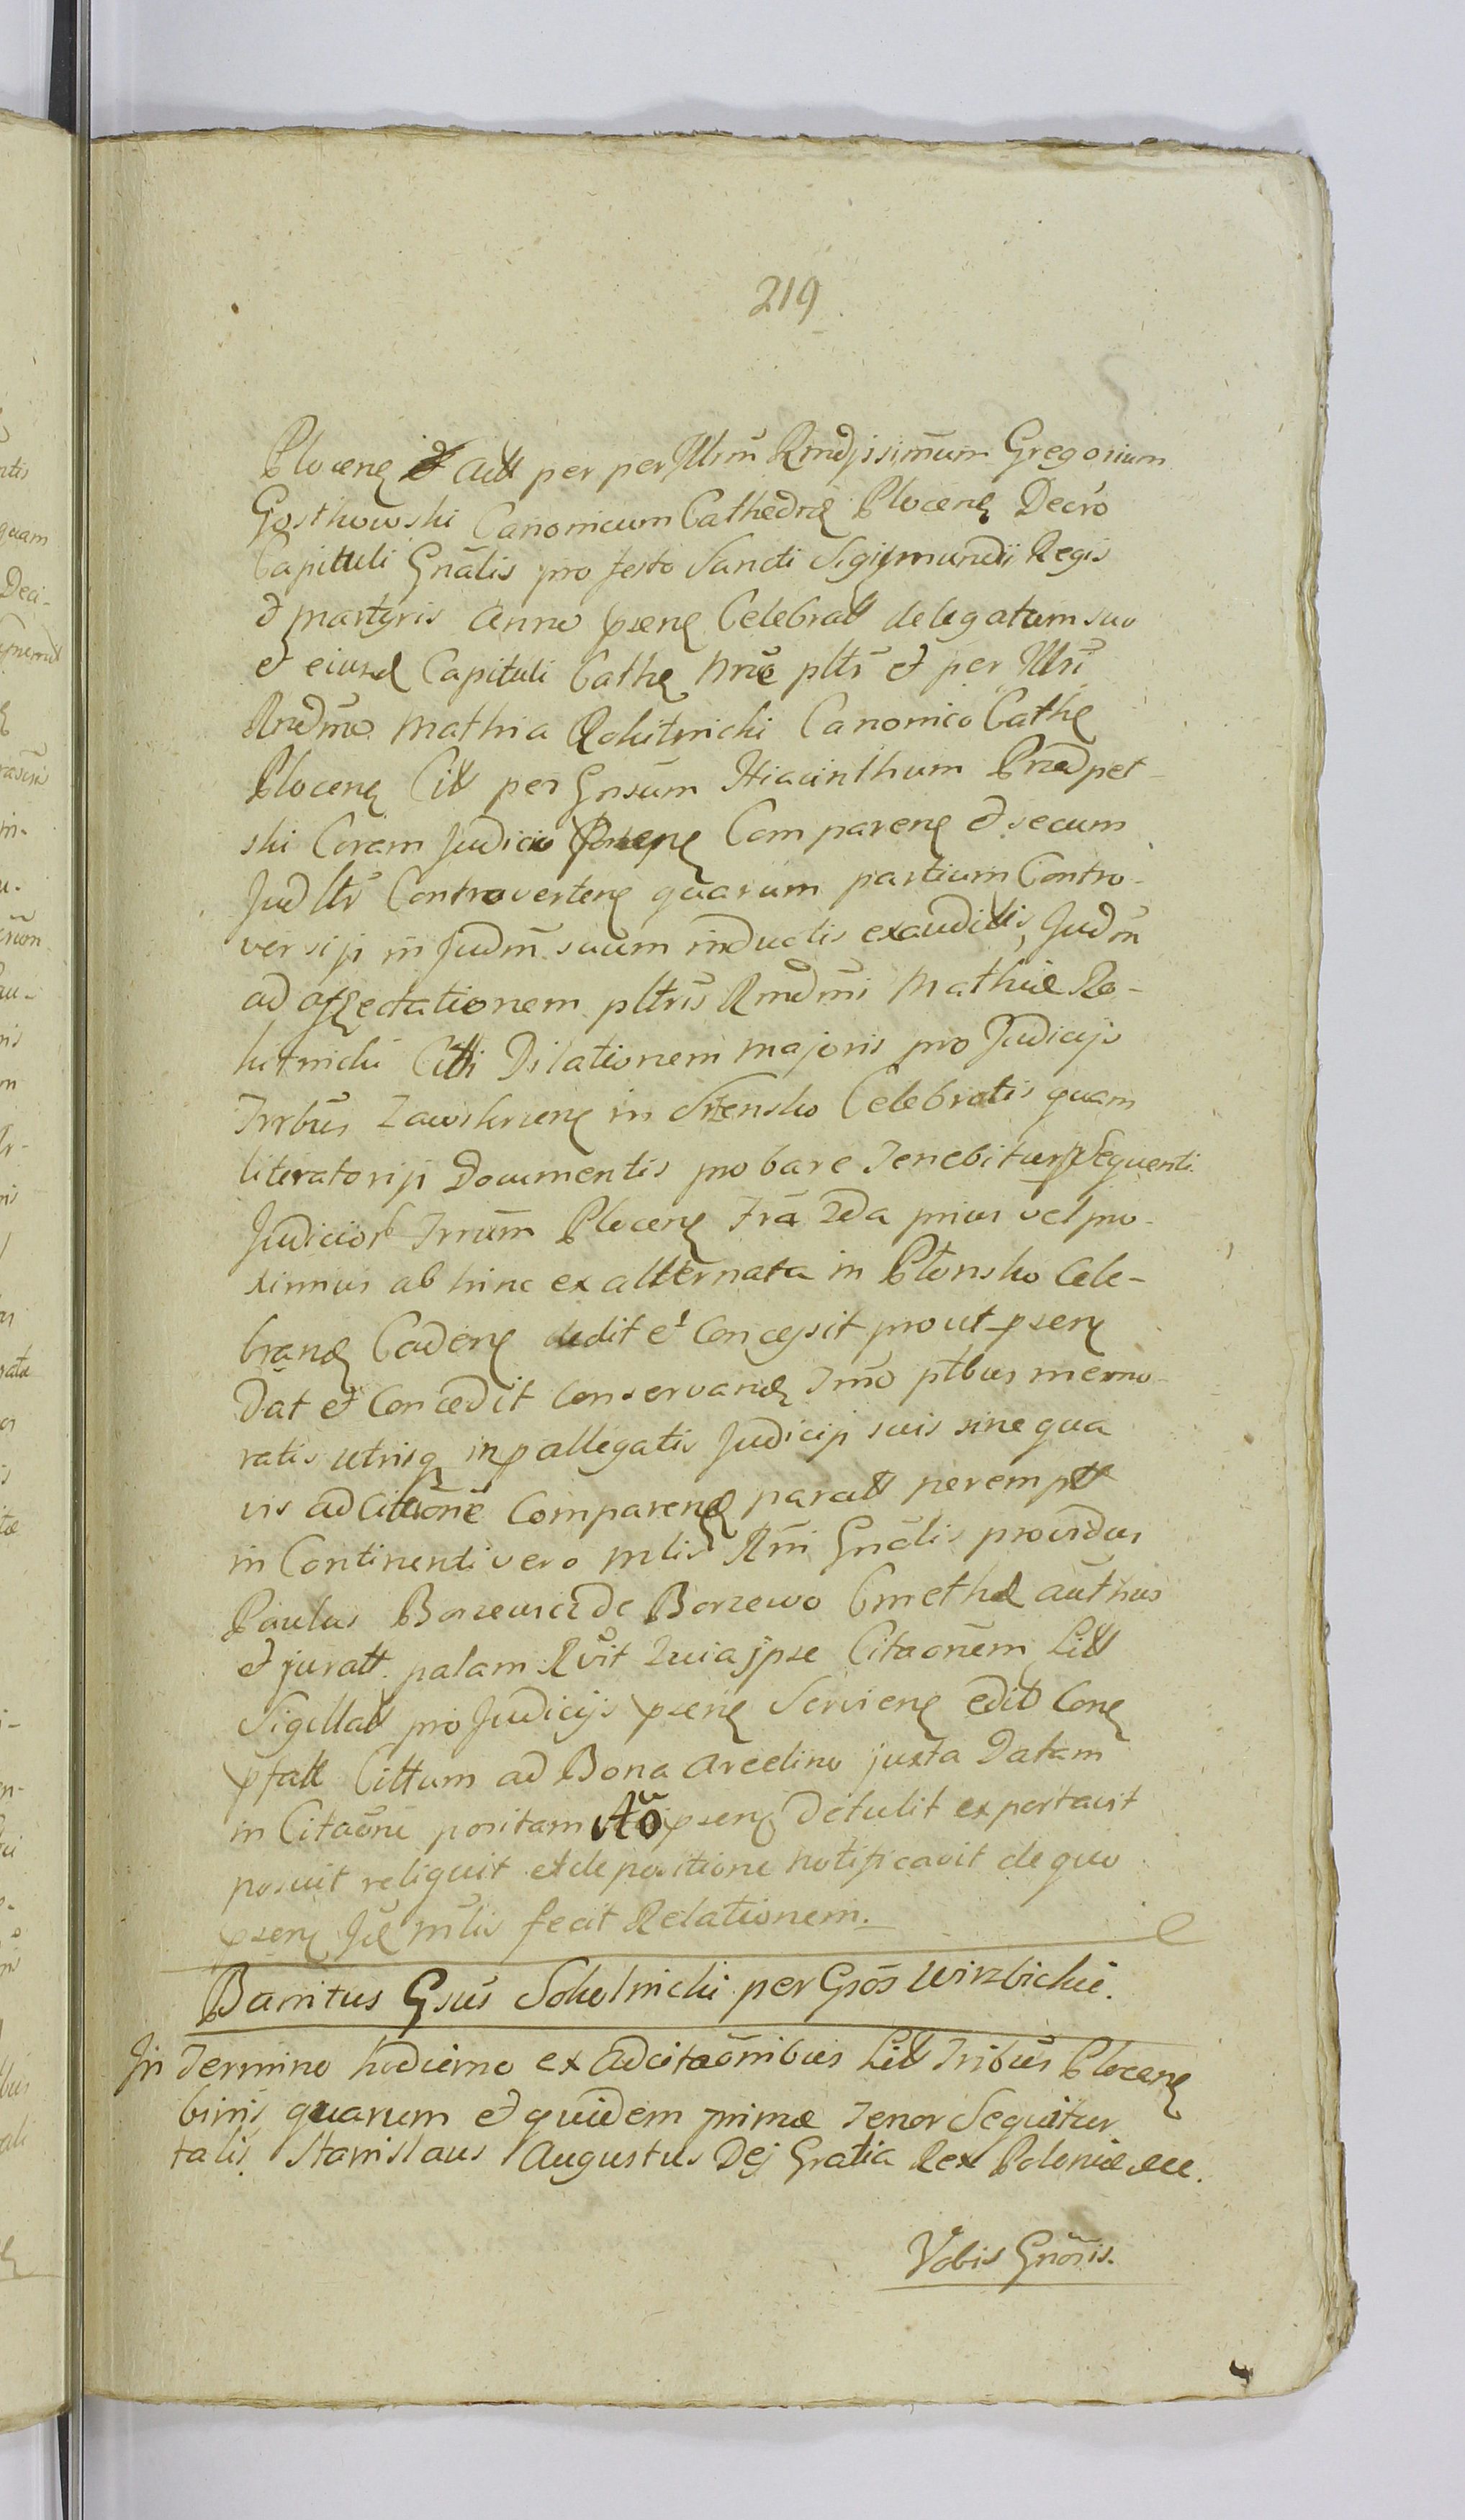 219
Plocen et Actt per per Illrm Rmdjssimum Gregorium
Gosthowski Canonicum Cathedræ Plocen Decro
Capituli Gnalis pro festo Sancti Sigismundi Regis
et martyris Anno psen Celebratt delegatum suo
et eiusd Capituli Cathe nne pltr et per Illri
Rndmo Mathia Rokitnicki Canonico Cathe
Plocen Citt per Gnsum Hiacinthum Przedpel-
ski Coram Judicio psen Comparen et secum
Judltr Controverten quarum partium Contro-
versiji in Judm suum inductis exauditis, Judm
ad affectationem pltris Rmdmi Mathiæ Ro-
kitnicki Citti Dilationem majoris pro Judicijs
Trrbus Zawskrzen in Szrensko Celebratis quam
literatoriji Documentis probare Tenebitur p Sequenti
Judiciorb Trrum Plocen Fra 2da prius vel pro-
ximius ab hinc ex alternata in Płonsko Cele-
brand Caden dedit et Concessit prout psen
Dat et Concedit Conservand Tmo ptbus memo-
ratis utrisq in p allegatis Judicijs suis sine qua
vis adcitaone Comparend paratt perempt
in Continenti vero mlis Rni Gnalis providus
Paulus Borzewicz de Borzewo Cmetho authus
et juratt palam Rvit Quia jpse Citaonem Litt
Sigillatt pro Judicijs psen Servien edit Con
pfatt Cittum ad Bona Arcelino juxta Datam
in Citaone positam Ao psen detulit exportavit
posuit reliquit et de positione notificavit de quo
psen Je mlis fecit Relationem.
Banitus Gsus Sokolnicki per Gsos Wirzbickie.
In Termino hodierno ex Adcitaonibus Litt Tribus Plocen
binis quarum et quidem primæ Tenor Sequitur
talis. Stanislaus Augustus Dej Gratia Rex Poloniæ etc.
Vobis Gnosis.